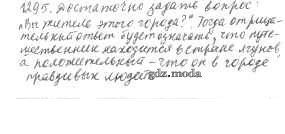 1295. Достаточно задать вопрос:
„Вы житель этого города?“ Тогда отрица-
тельный ответ будет означать, что путе-
шественник находится в стране лгунов,
а положительный – что он в городе
правдивых людей.
gdz.moda